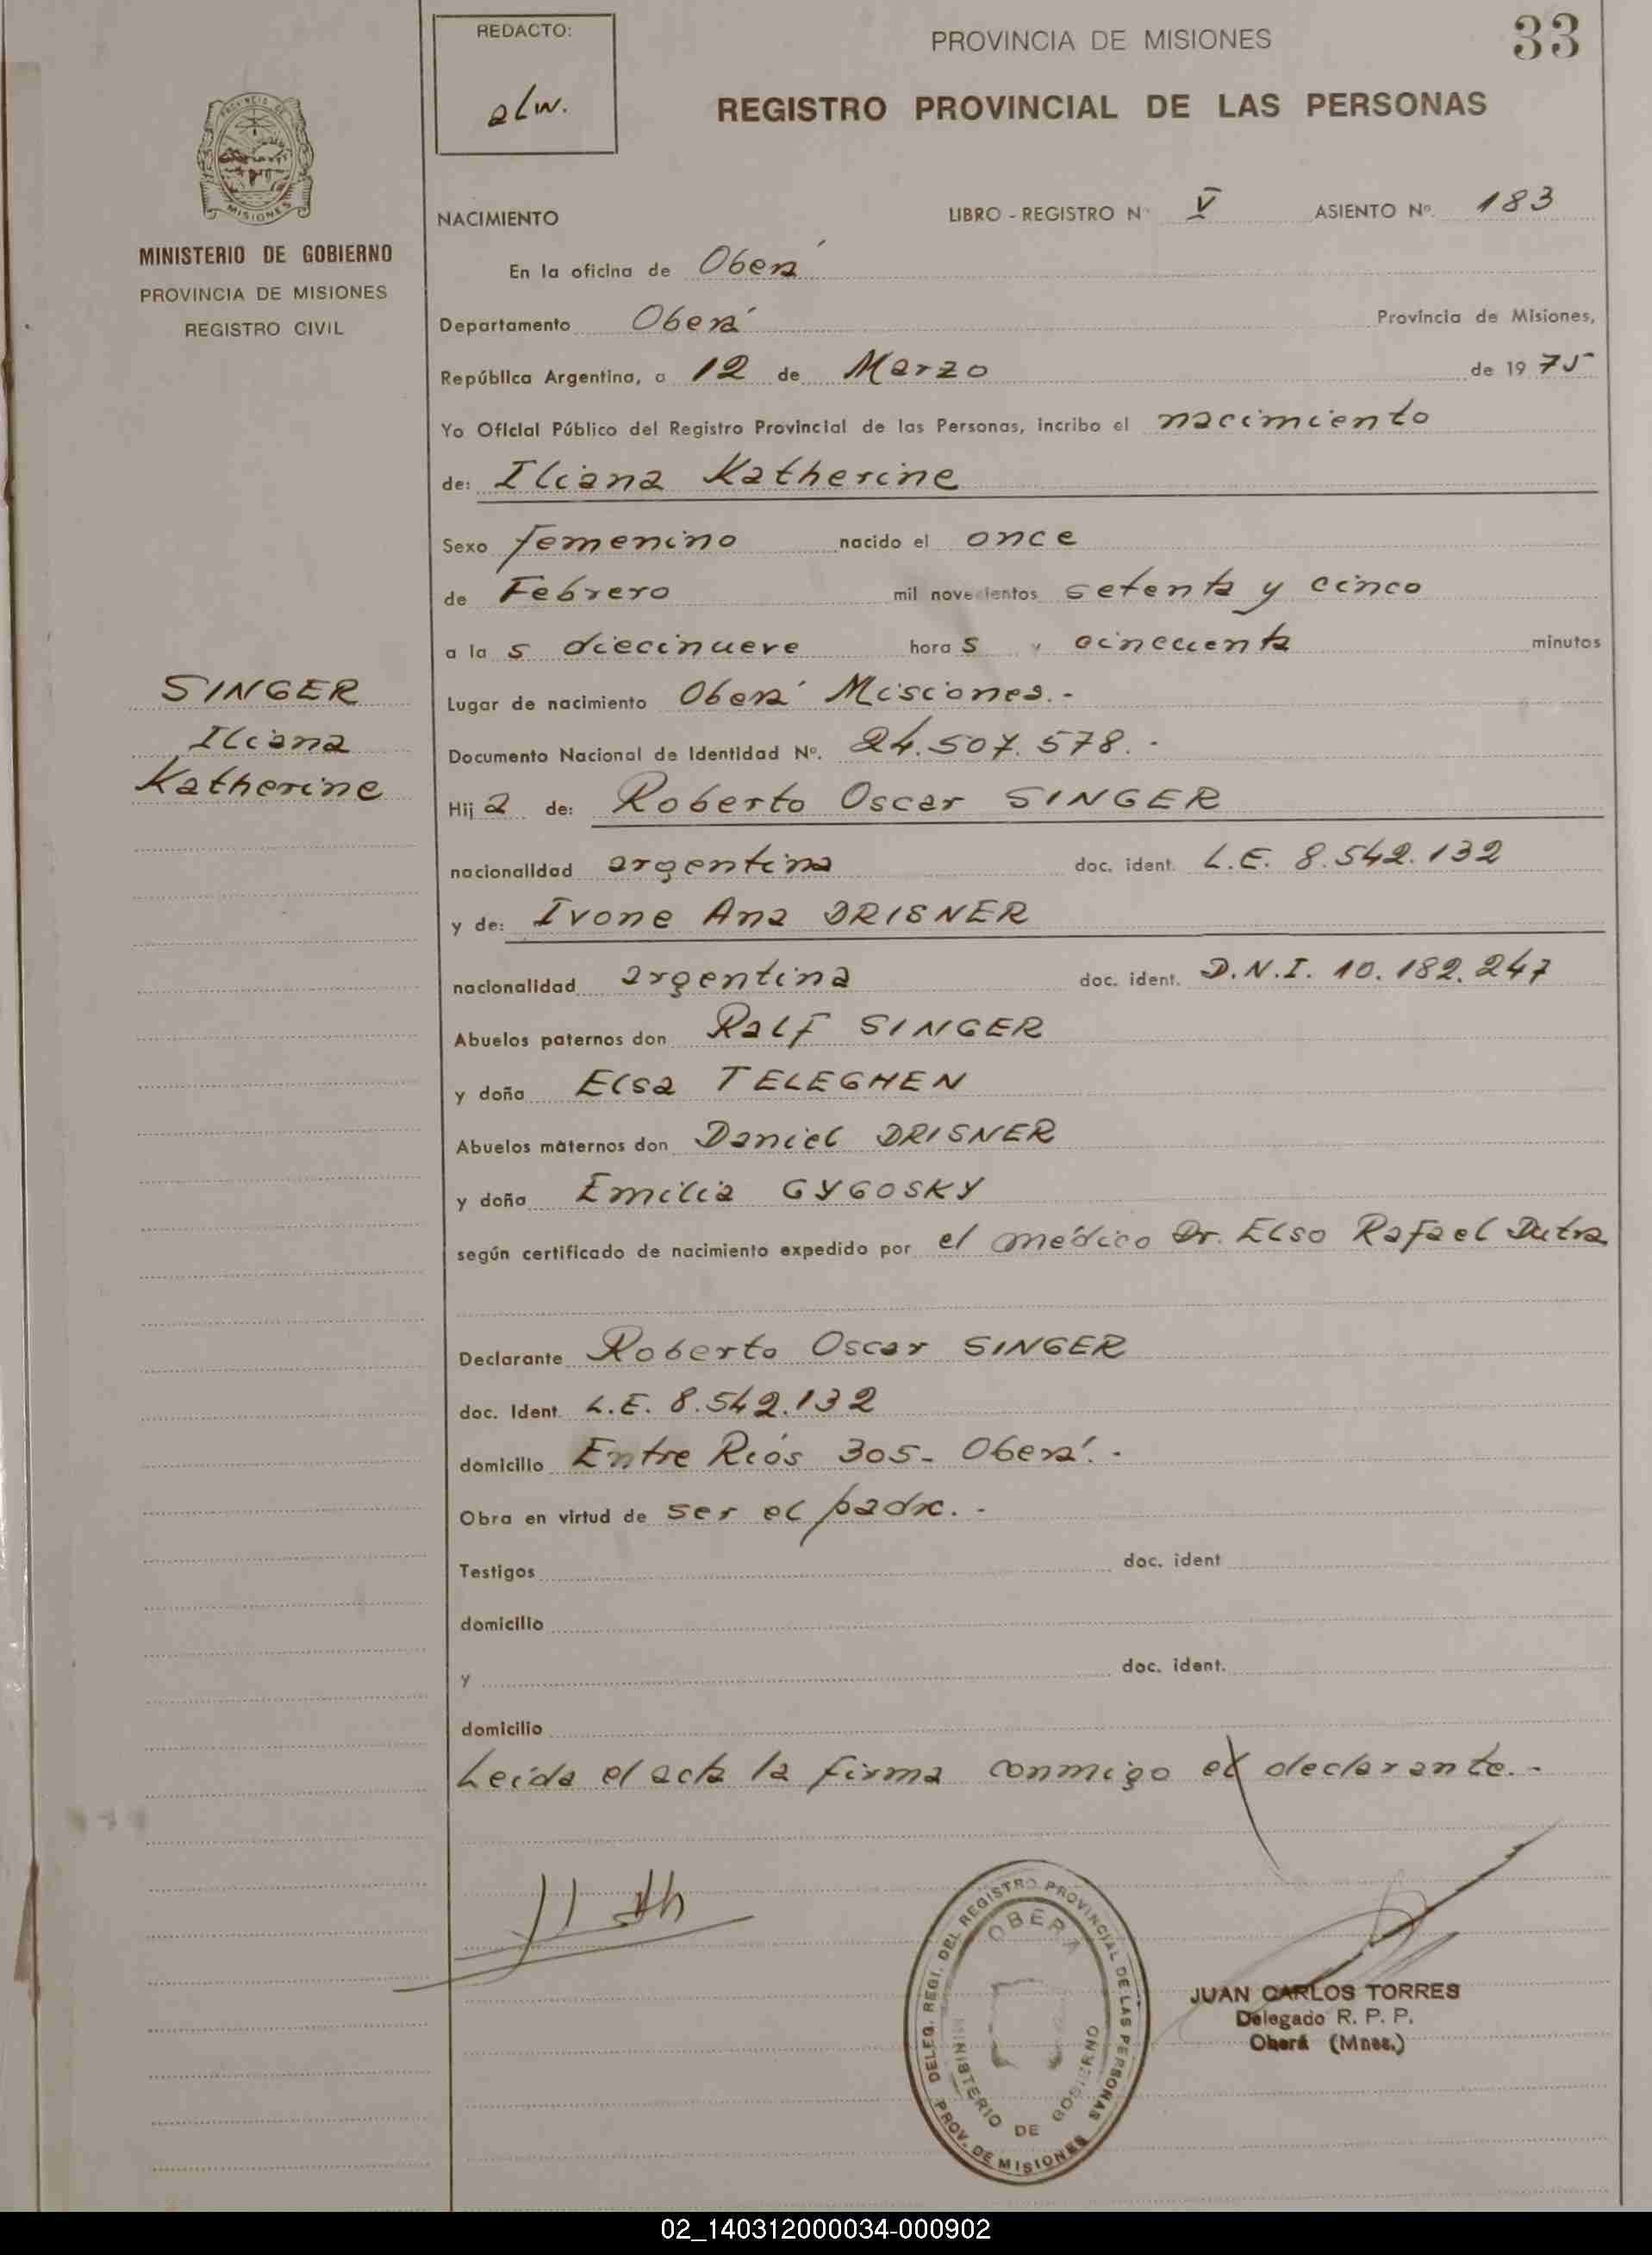 REDACTO:
alw.
PROVINCIA DE MISIONES
33
REGISTRO PROVINCIAL DE LAS PERSONAS
MISIONES
MINISTERIO DE GOBIERNO
PROVINCIA DE MISIONES
REGISTRO CIVIL
NACIMIENTO LIBRO - REGISTRO Nº V ASIENTO Nº. 183
En la oficina de Oberá
Departamento Oberá Provincia de Misiones,
República Argentina, a 12 de Marzo de 1975
Yo Oficial Público del Registro Provincial de las Personas, incribo el nacimiento
de: Iliana Katherine
Sexo femenino nacido el once
de Febrero mil novecientos setenta y cinco
a las diecinueve horas y cincuenta minutos
SINGER
Iliana
Katherine
Lugar de nacimiento Oberá Misiones.-
Documento Nacional de Identidad Nº. 24.507.578.-
Hija de: Roberto Oscar SINGER
nacionalidad argentina doc. ident. L.E. 8.542.132
y de: Ivone Ana DRISNER
nacionalidad argentina doc. ident. D.N.I. 10.182.247
Abuelos paternos don Ralf SINGER
y doña Elsa TELEGHEN
Abuelos maternos don Daniel DRISNER
y doña Emilia GYGOSKY
según certificado de nacimiento expedido por el médico Dr. Elso Rafael Dutra
Declarante Roberto Oscar SINGER
doc. Ident. L.E. 8.542.132
domicilio Entre Ríos 305- Oberá.-
Obra en virtud de ser el padre.-
Testigos doc. ident
domicilio
y doc. ident.
domicilio
Leída el acta la firma conmigo el declarante.-
DELEG. REGI. DEL REGISTRO PROVINCIAL DE LAS PERSONAS
OBERÁ
MINISTERIO DE GOBIERNO
PROV. DE MISIONES
JUAN CARLOS TORRES
Delegado R. P. P.
Oberá (Mnes.)
02_140312000034-000902